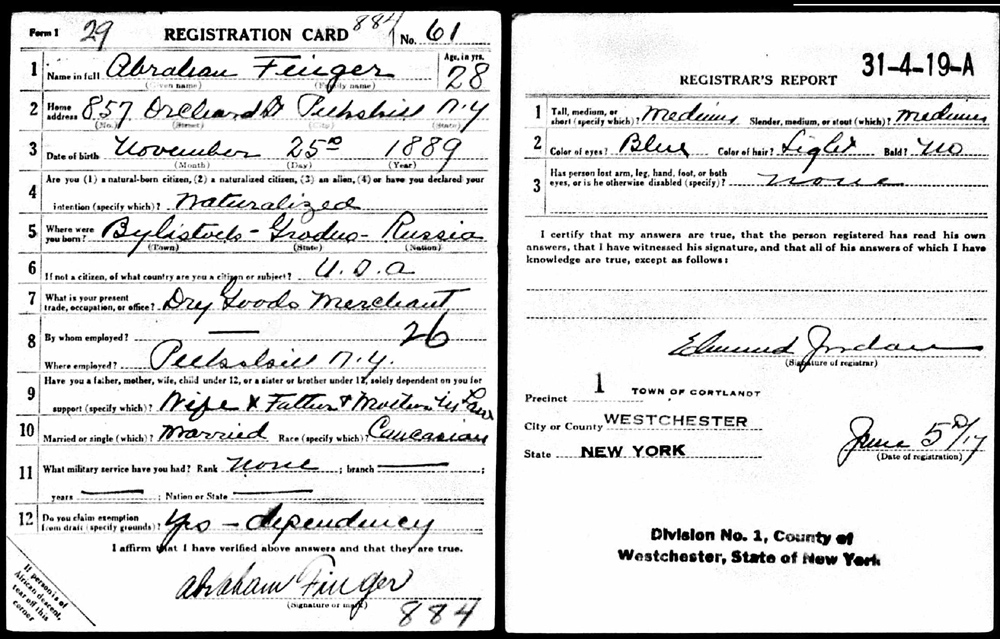 Form 1 29 REGISTRATION CARD 884 No. 61
1 Name in full Abraham Finger Age, in yrs. 28
(Given name) (Family name)
2 Home address 857 Orchard St Peekskill N.Y
(No.) (Street) (City) (State)
3 Date of birth November 25th 1889
(Month) (Day) (Year)
4 Are you (1) a natural-born citizen, (2) a naturalized citizen, (3) an alien, (4) or have you declared your
intention (specify which)? Naturalized
5 Where were you born? Bylistock - Grodno - Russia
(Town) (State) (Nation)
6 If not a citizen, of what country are you a citizen or subject? U.S.A
7 What is your present trade, occupation, or office? Dry Goods Merchant
26
8 By whom employed? —
Where employed? Peekskill N.Y.
9 Have you a father, mother, wife, child under 12, or a sister or brother under 12, solely dependent on you for
support (specify which)? Wife & Father & Mother in Law
10 Married or single (which)? Married Race (specify which)? Caucasian
11 What military service have you had? Rank None ; branch — ;
years — ; Nation or State —
12 Do you claim exemption from draft (specify grounds)? Yes - dependency
I affirm that I have verified above answers and that they are true.
Abraham Finger
(Signature or mark)
884
If person is of
African descent,
tear off this
corner
31-4-19-A
REGISTRAR'S REPORT
1 Tall, medium, or short (specify which)? Medium Slender, medium, or stout (which)? Medium
2 Color of eyes? Blue Color of hair? Light Bald? No
3 Has person lost arm, leg, hand, foot, or both eyes, or is he otherwise disabled (specify)? None
I certify that my answers are true, that the person registered has read his own
answers, that I have witnessed his signature, and that all of his answers of which I have
knowledge are true, except as follows:
Edmund Jordan
(Signature of registrar)
Precinct 1 TOWN OF CORTLANDT
City or County WESTCHESTER
State NEW YORK
June 5th/17
(Date of registration)
Division No. 1, County of
Westchester, State of New York